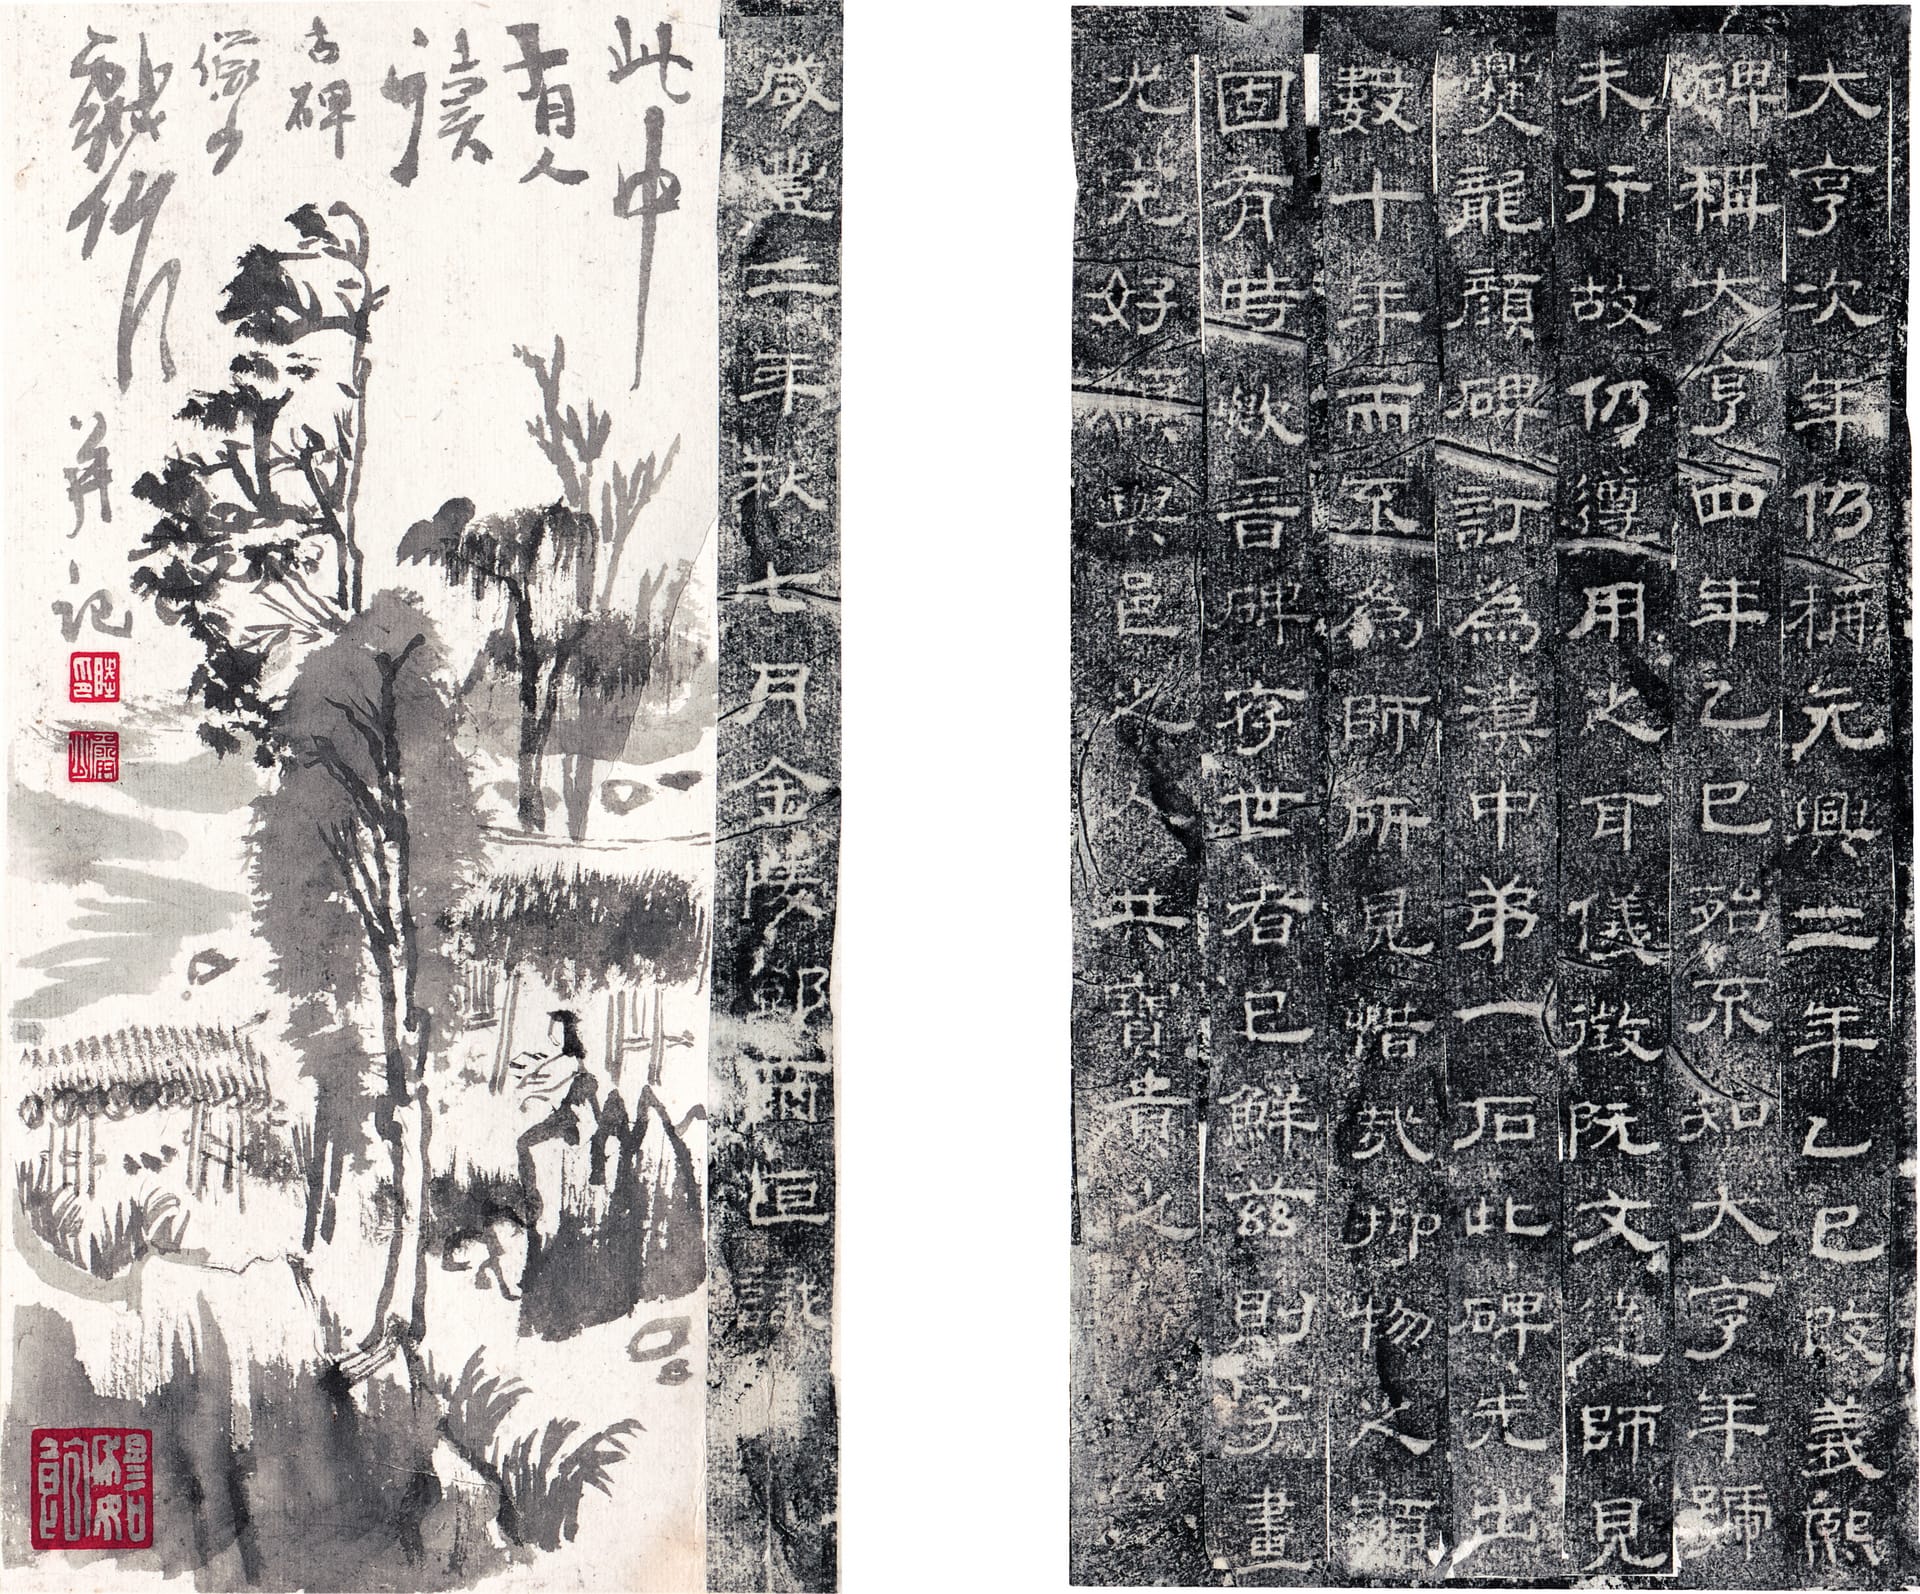 大亨次年仍稱元興二年乙巳改義熙
碑稱大亨四年乙巳殆不知大亨年號
未行故仍遵用之耳儀徵阮文達師見
爨龍顏碑訂為滇中第一石此碑先出
數十年而不為師所見惜哉抑物之顯
固有時歟晉碑存世者已鮮茲則字畫
尤完好願與邑之人共寶貴之
咸豐二年秋七月金陵鄧爾恒識
此中
有人
讀
古碑
儼少
戲作
并記
陸印
儼少